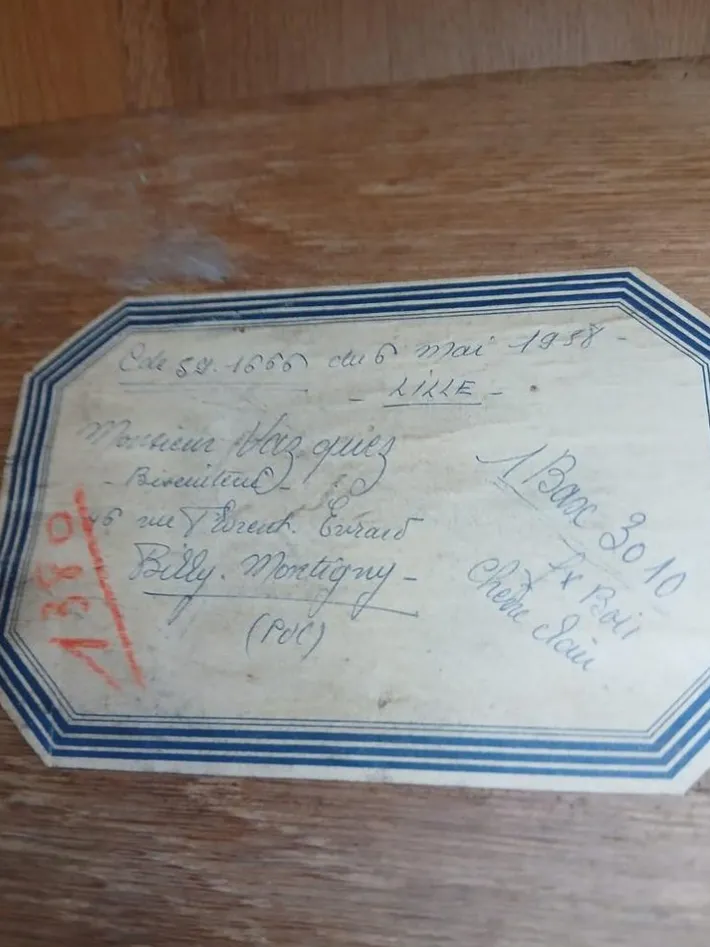 Cde 59.1666 du 6 mai 1958-
- LILLE -
Monsieur Vazquez
- Biscuiterie -
46 rue Florent. Evrard
Billy. Montigny -
(PdC)
1 Bax 3010
fx Bois
Chêne clair
1380